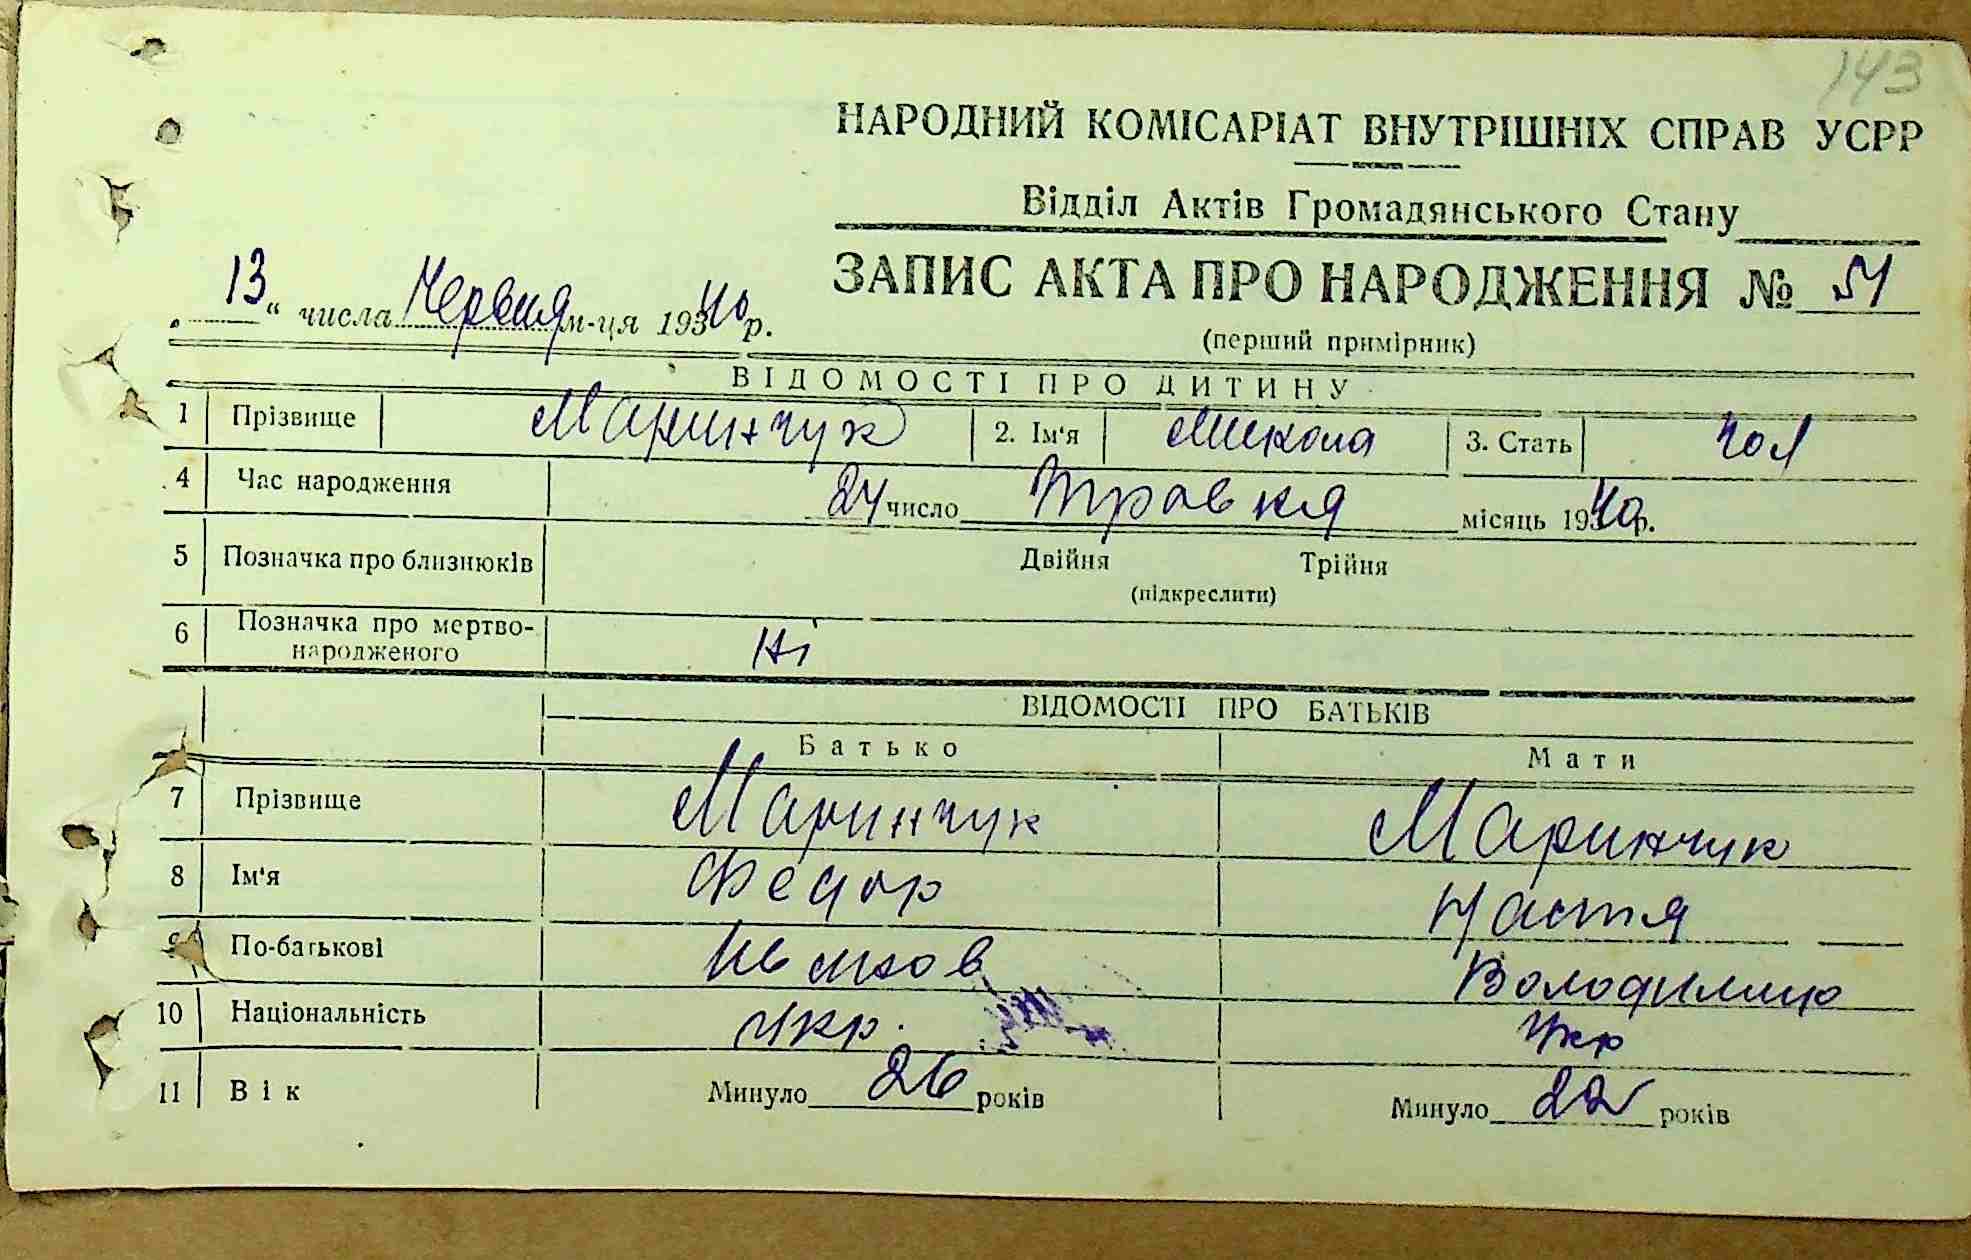 143
НАРОДНИЙ КОМІСАРІАТ ВНУТРІШНІХ СПРАВ УСРР
Відділ Актів Громадянського Стану
ЗАПИС АКТА ПРО НАРОДЖЕННЯ № 51
„13“ числа Червня м-ця 1940 р.
(перший примірник)
ВІДОМОСТІ ПРО ДИТИНУ
1 Прізвище Маринчук 2. Ім'я Микола 3. Стать чол
4 Час народження 24 число Травня місяць 1940 р.
5 Позначка про близнюків Двійня Трійня
(підкреслити)
6 Позначка про мертво-
народженого Ні
ВІДОМОСТІ ПРО БАТЬКІВ
Батько Мати
7 Прізвище Маринчук Маринчук
8 Ім'я Федор Настя
9 По-батькові
10 Національність Укр. Укр
11 Вік Минуло 26 років Минуло 22 років